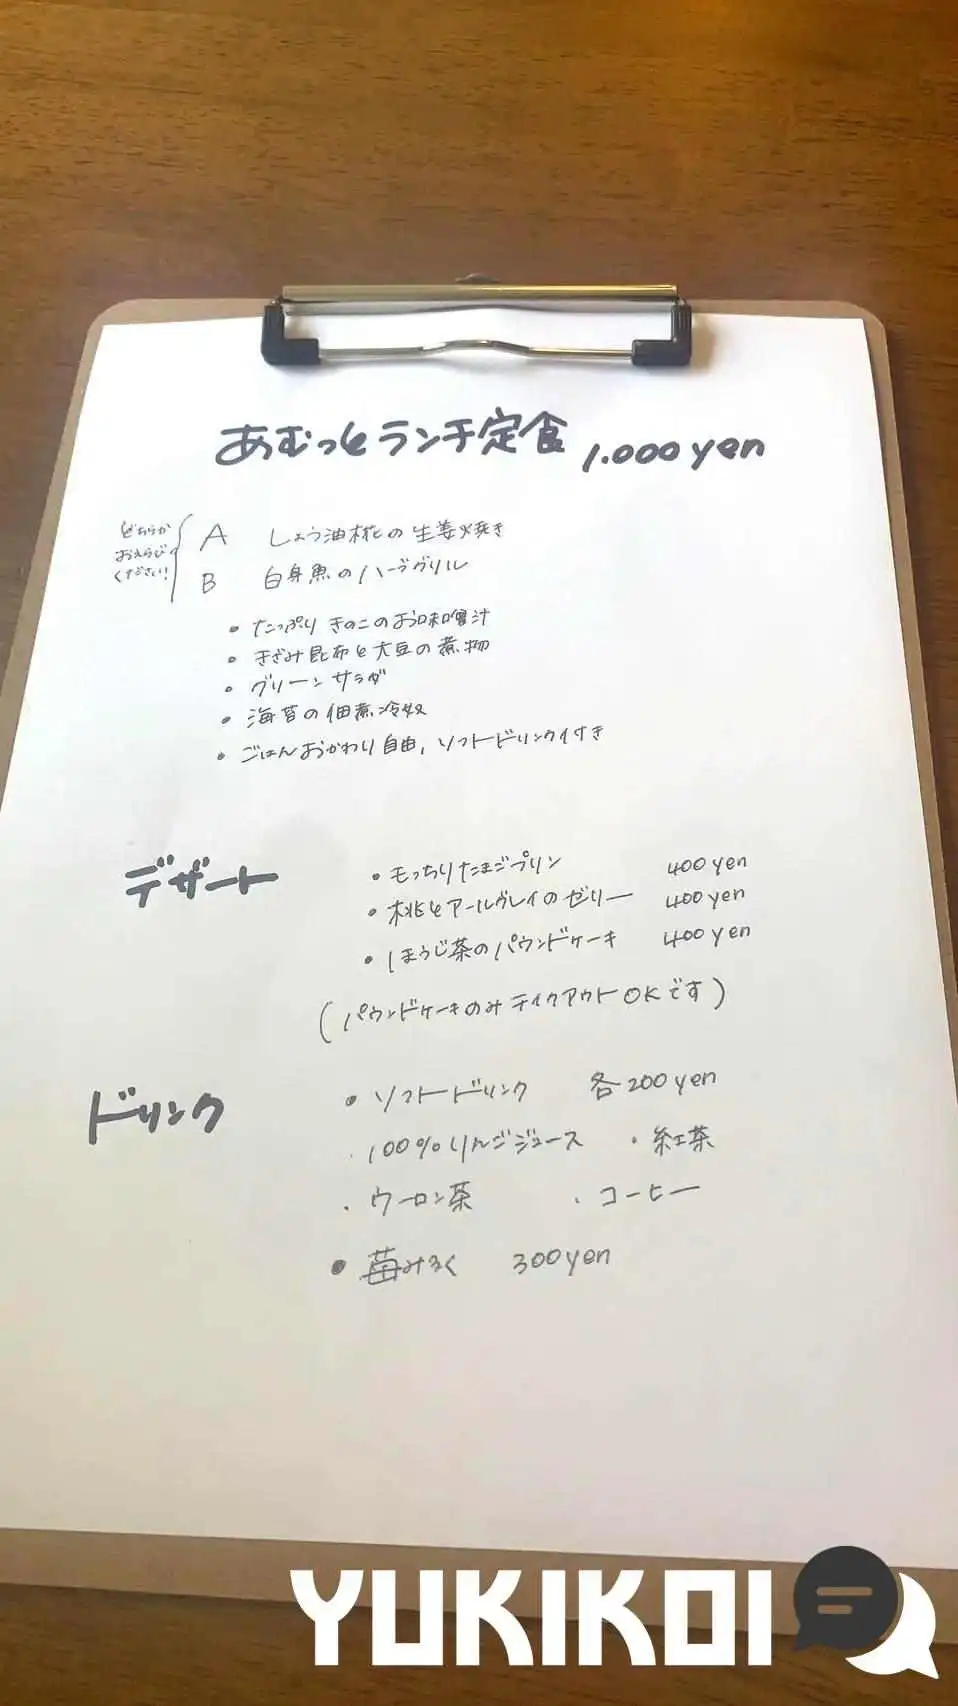 あむっとランチ定食 1.000yen
どちらか
おえらび
ください!
A しょう油糀の生姜焼き
B 白身魚のハーブグリル
• たっぷりきのこのお味噌汁
• きざみ昆布と大豆の煮物
• グリーンサラダ
• 海苔の佃煮冷奴
• ごはんおかわり自由, ソフトドリンク付き
デザート
• もっちりたまごプリン 400yen
• 桃とアールグレイのゼリー 400yen
• ほうじ茶のパウンドケーキ 400yen
(パウンドケーキのみテイクアウトOKです)
ドリンク
• ソフトドリンク 各200yen
・100%りんごジュース ・紅茶
・ウーロン茶 ・コーヒー
• 苺みるく 300yen
YUKIKOI